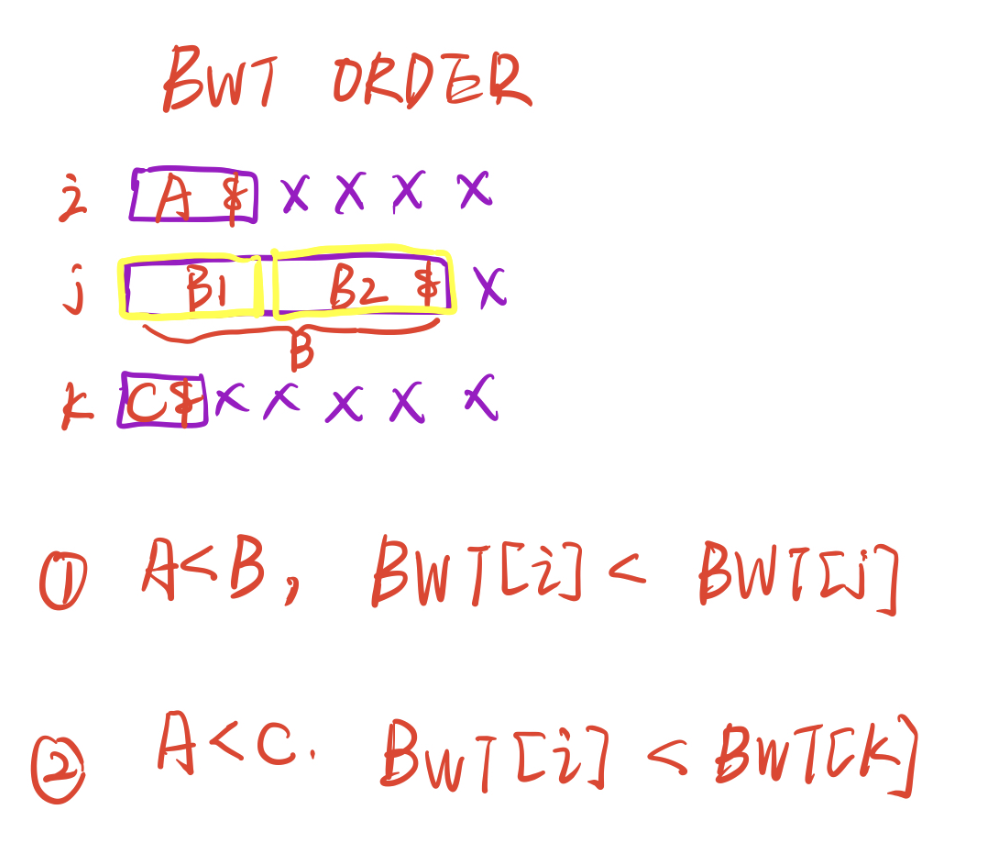 BWT ORDER
i A $ X X X X
j B1 B2 $ X
B
k C$ X X X X X
① A<B, BWT[i] < BWT[j]
② A<C. BWT[i] < BWT[k]